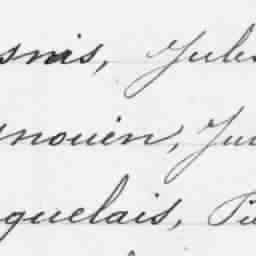 snis, Jules
nouën, Ju
quelais, Pi